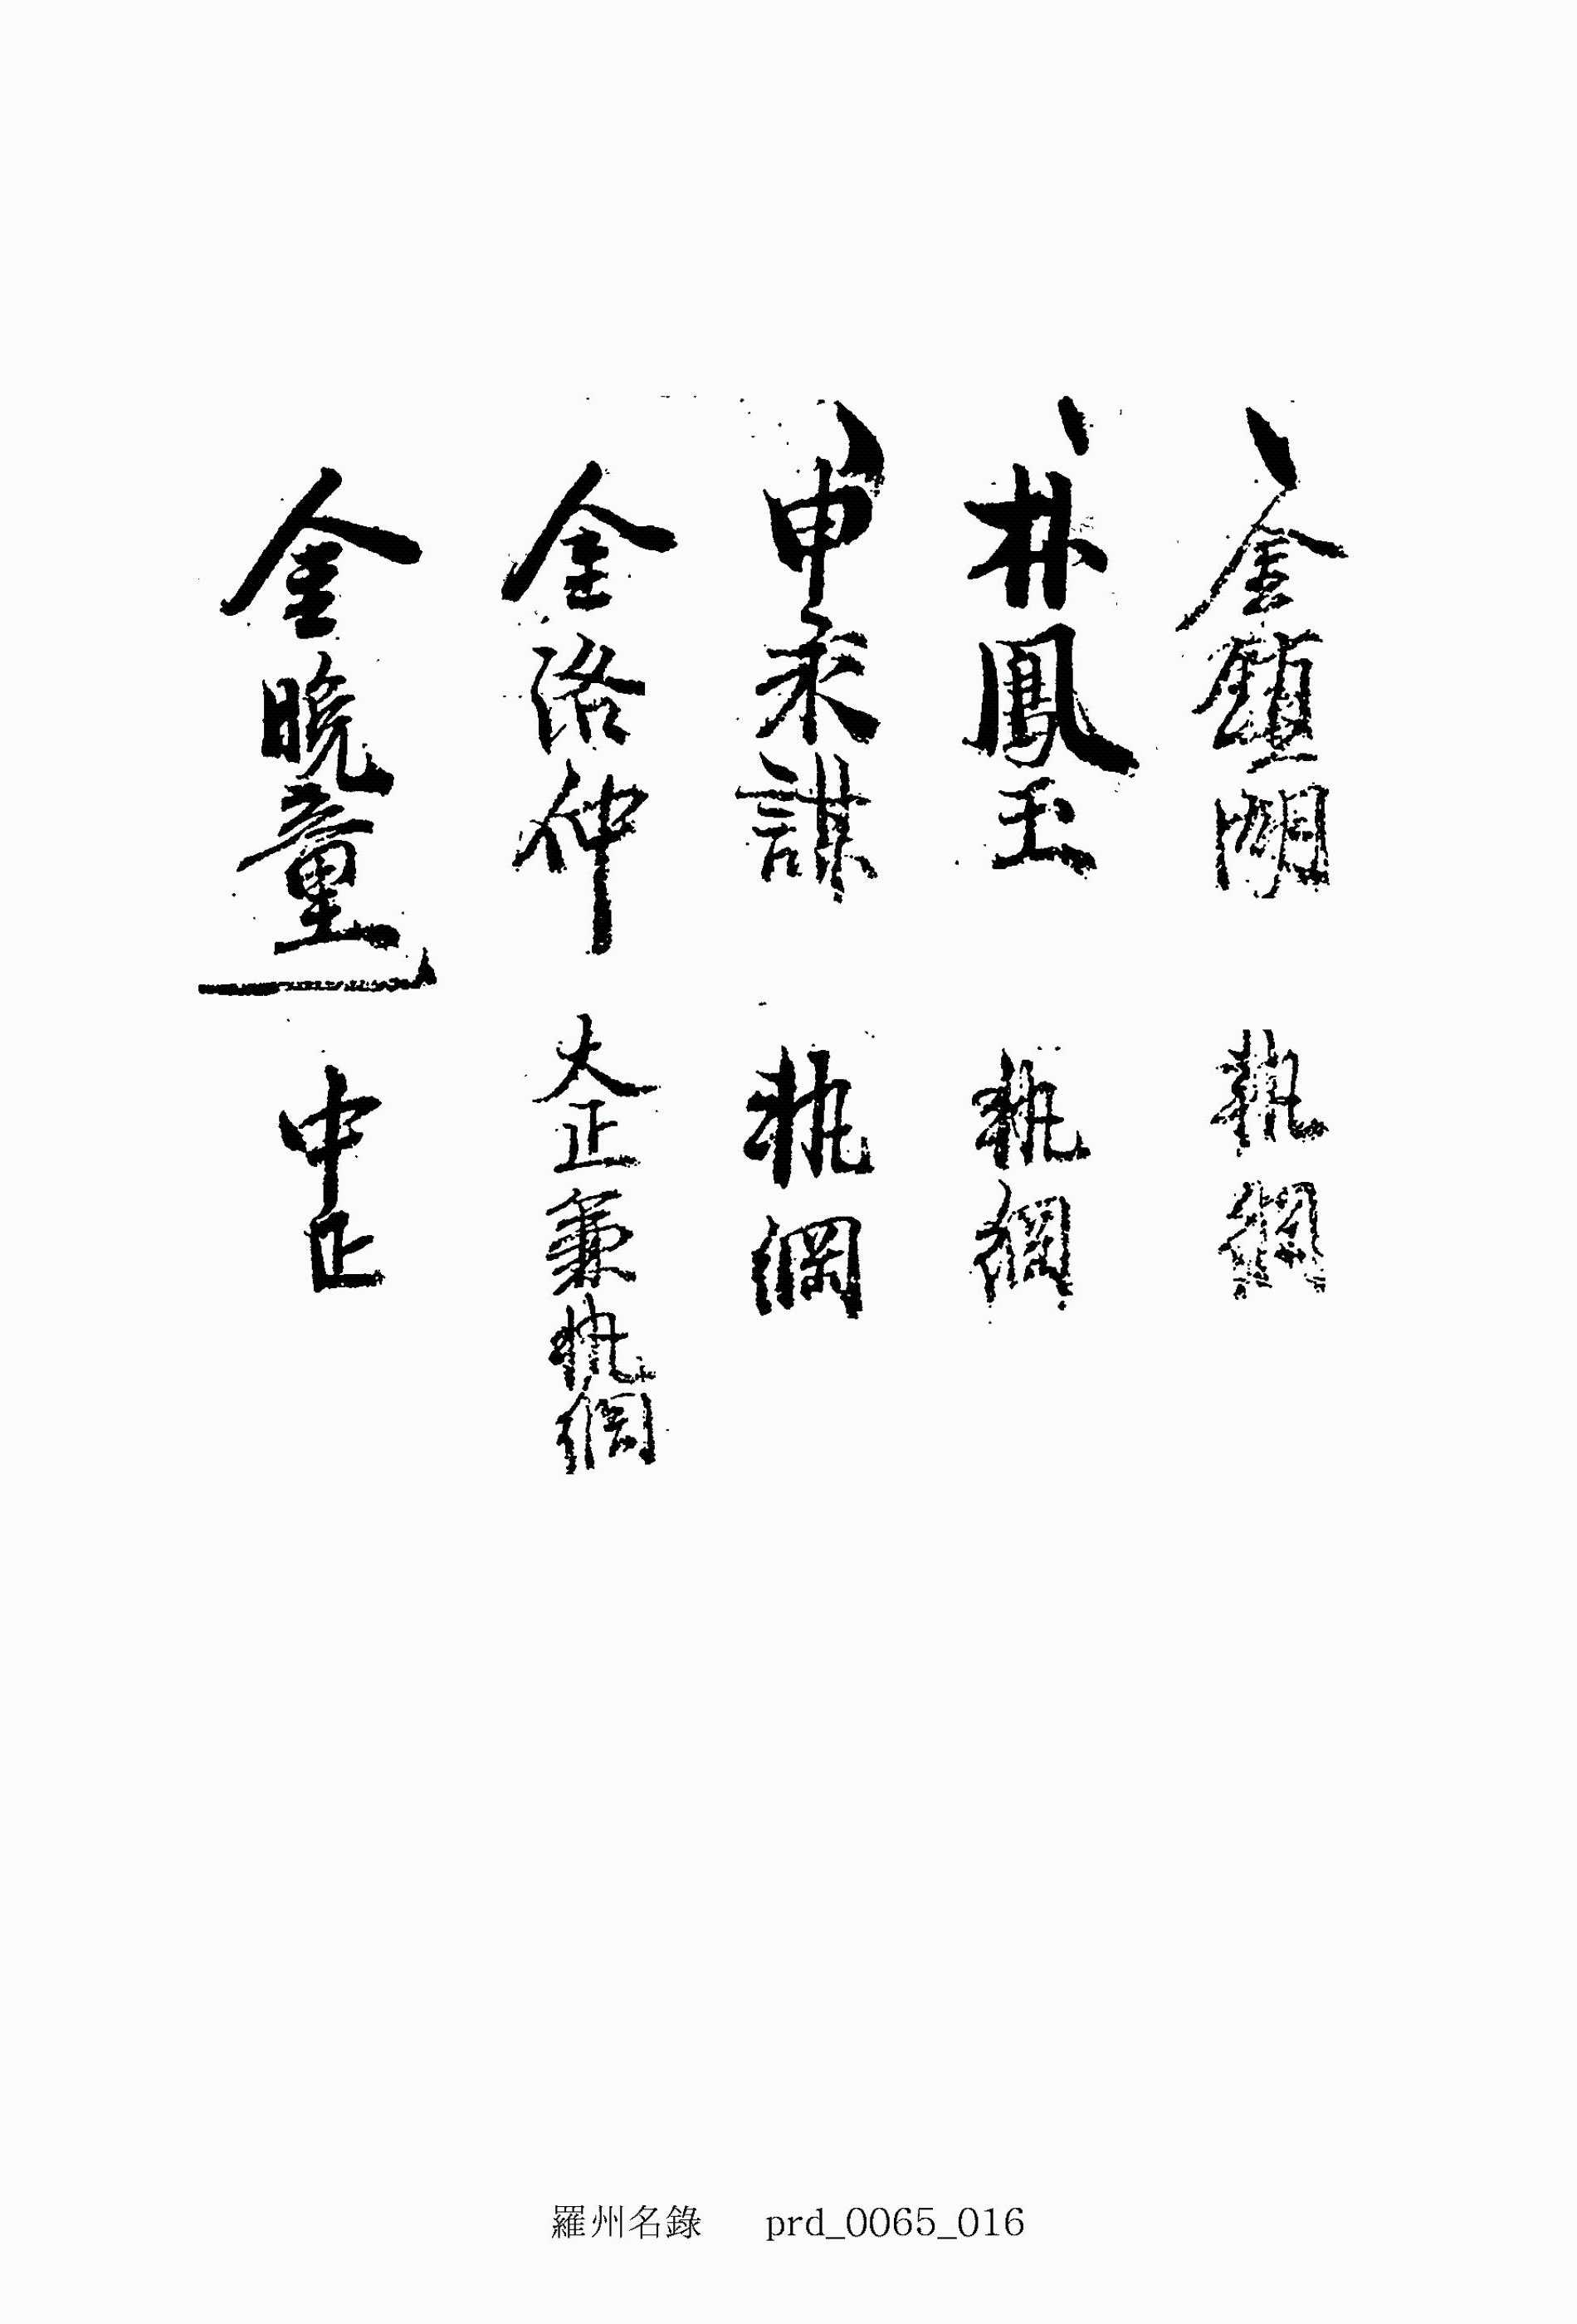 金鎭湖 執綱
朴鳳玉 執綱
申永謀 執綱
金洛仲 大正兼執綱
金晩童 中正
羅州名錄 prd_0065_016